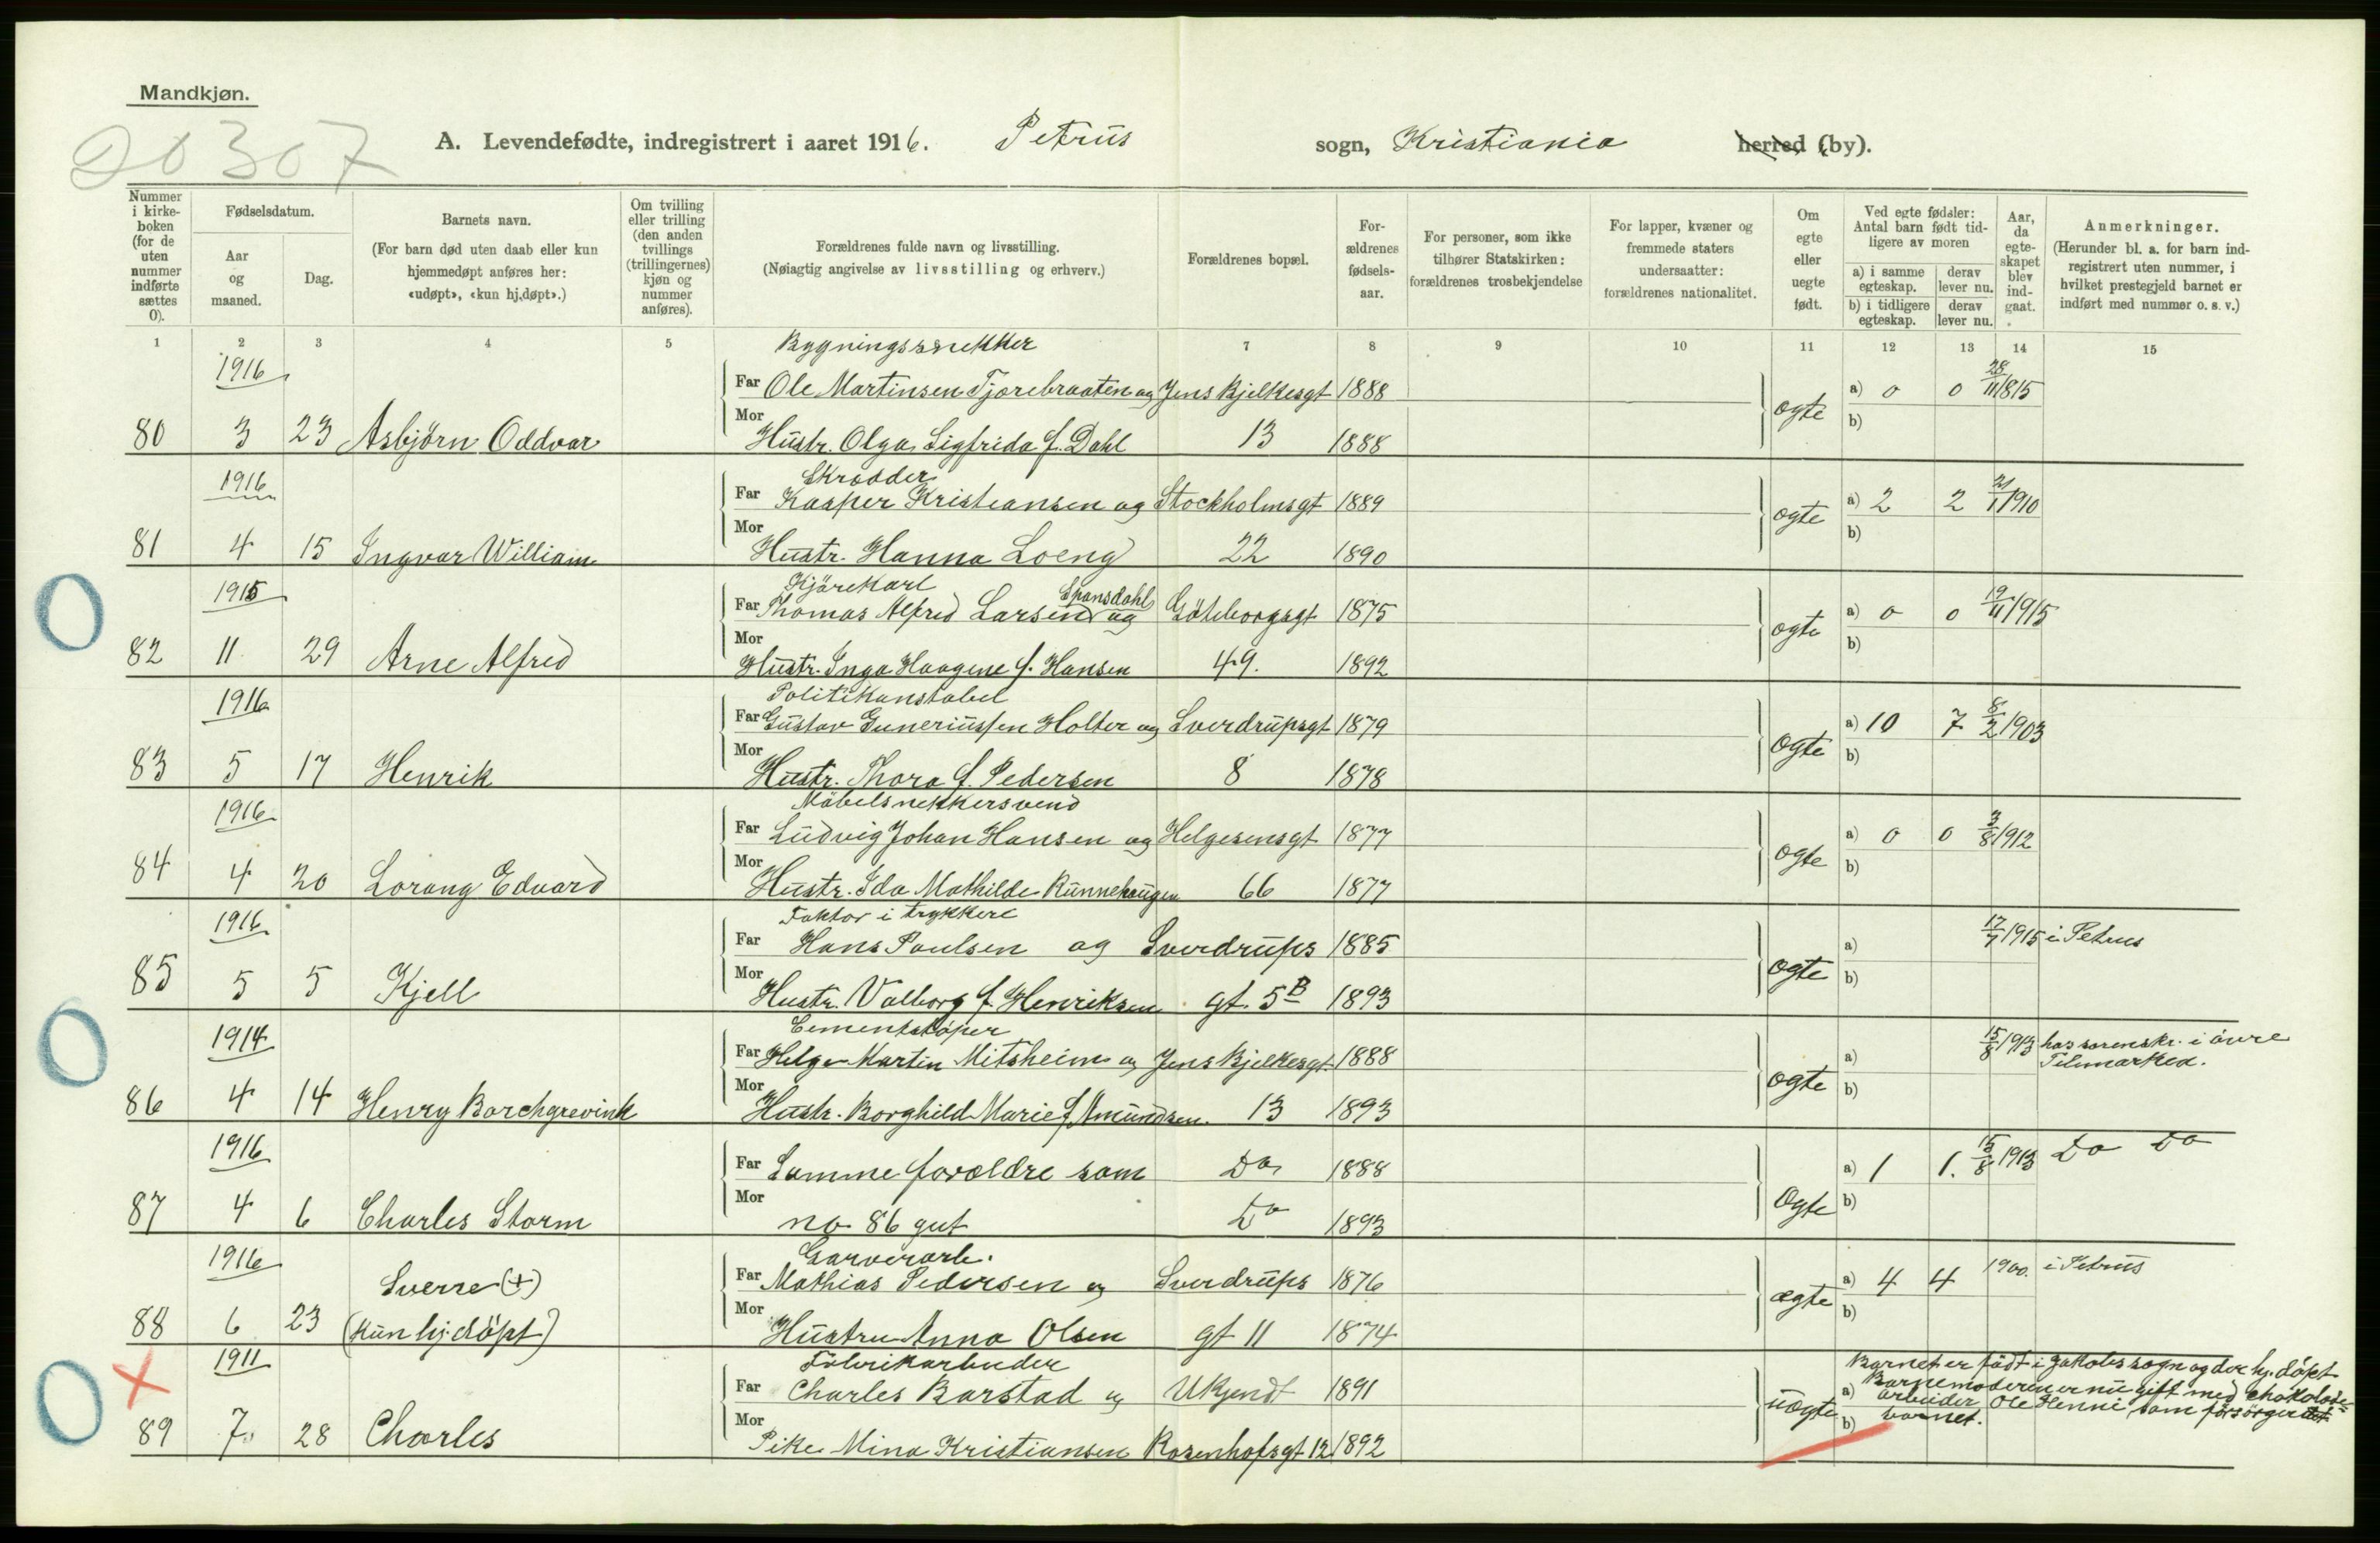 Mandkjøn.
20307
A. Levendefødte, indregistrert i aaret 1916. Petrus sogn, Kristiania herred (by).
Nummer i kirke-boken (for de uten nummer indførte sættes 0).
Fødselsdatum.
Aar og maaned.
Dag.
Barnets navn.
(For barn død uten daab eller kun hjemmedøpt anføres her: «udøpt», «kun hj.døpt».)
Om tvilling eller trilling (den anden tvillings (trillingernes) kjøn og nummer anføres).
Forældrenes fulde navn og livsstilling.
(Nøiagtig angivelse av livsstilling og erhverv.)
Forældrenes bopæl.
For-ældrenes fødsels-aar.
For personer, som ikke tilhører Statskirken: forældrenes trosbekjendelse
For lapper, kvæner og fremmede staters undersaatter: forældrenes nationalitet.
Om egte eller uegte født.
Ved egte fødsler: Antal barn født tid-ligere av moren
a) i samme egteskap. derav lever nu.
b) i tidligere egteskap. derav lever nu.
Aar, da egte-skapet blev ind-gaat.
Anmerkninger.
(Herunder bl. a. for barn ind-registrert uten nummer, i hvilket prestegjeld barnet er indført med nummer o. s. v.)
1 2 3 4 5 7 8 9 10 11 12 13 14 15
Bygningssnekker
1916
Far Ole Martinsen Tjorebraaten og Jens Bjelkesgt 1888 ogte a) 0 0 28/11 1815
80 3 23 Asbjørn Oddvar Mor Hustr. Olga Sigfrida f. Dahl 13 1888 b)
1916 Skrødder
Far Kasper Kristiansen og Stockholmsgt 1889 ogte a) 2 2 21/1 1910
81 4 15 Ingvar William Mor Hustr. Hanna Loeng 22 1890 b)
1915 Kjörekarl
Far Thomas Alfred Larsen Spansdahl og Göteborgsgt 1875 ogte a) 0 0 19/11 1915
82 11 29 Arne Alfred Mor Hustr. Inga Haagene f. Hansen 49. 1892 b)
1916 Politikonstabel
Far Gustav Guneriussen Holter og Sverdrupsgt 1879 ogte a) 10 7 8/2 1903
83 5 17 Henrik Mor Hustr. Thora f. Pedersen 8 1878 b)
1916 Möbelsnekkersvend
Far Ludvig Johan Hansen og Helgesensgt 1877 ogte a) 0 0 3/8 1912
84 4 20 Lorang Edvard Mor Hustr. Ida Mathilde Runnehaugen 66 1877 b)
1916 Faktor i trykkeri
Far Hans Paulsen og Sverdrups 1885 ogte a) 17/7 1915 i Petrus
85 5 5 Kjell Mor Hustr. Valborg f. Henriksen gt. 5B 1893 b)
1914 Cementstöper
Far Helge Martin Mitsheim og Jens Bjelkesgt 1888 ogte a) 15/8 1913 hos sorenskr. i övre Telemarken.
86 4 14 Henry Borchgrevink Mor Hustr. Borghild Marie f. Amundsen. 13 1893 b)
1916
Far Samme forældre som Do 1888 Ogte a) 1 1. 15/8 1913 Do Do
87 4 6 Charles Storm Mor no 86 gut Do 1893 b)
1916 Garverarb.
Sverre (+) Far Mathias Pedersen og Sverdrups 1876 ægte a) 4 4 1900. i Petrus
88 6 23 (kun hj. döpt) Mor Hustru Anna Olsen gt 11 1874 b)
1911 Fabrikarbeider
Far Charles Barstad og Ukjendt 1891 uogte a) b)
89 7 28 Charles Mor Pike Mina Kristiansen Rosenhofsgt 12 1892
Barnet er födt i Jakobs sogn og der hj. döpt
Barnemoderen er nu gift med chokolade-
arbeider Ole Henni som forsörger det
barnet.